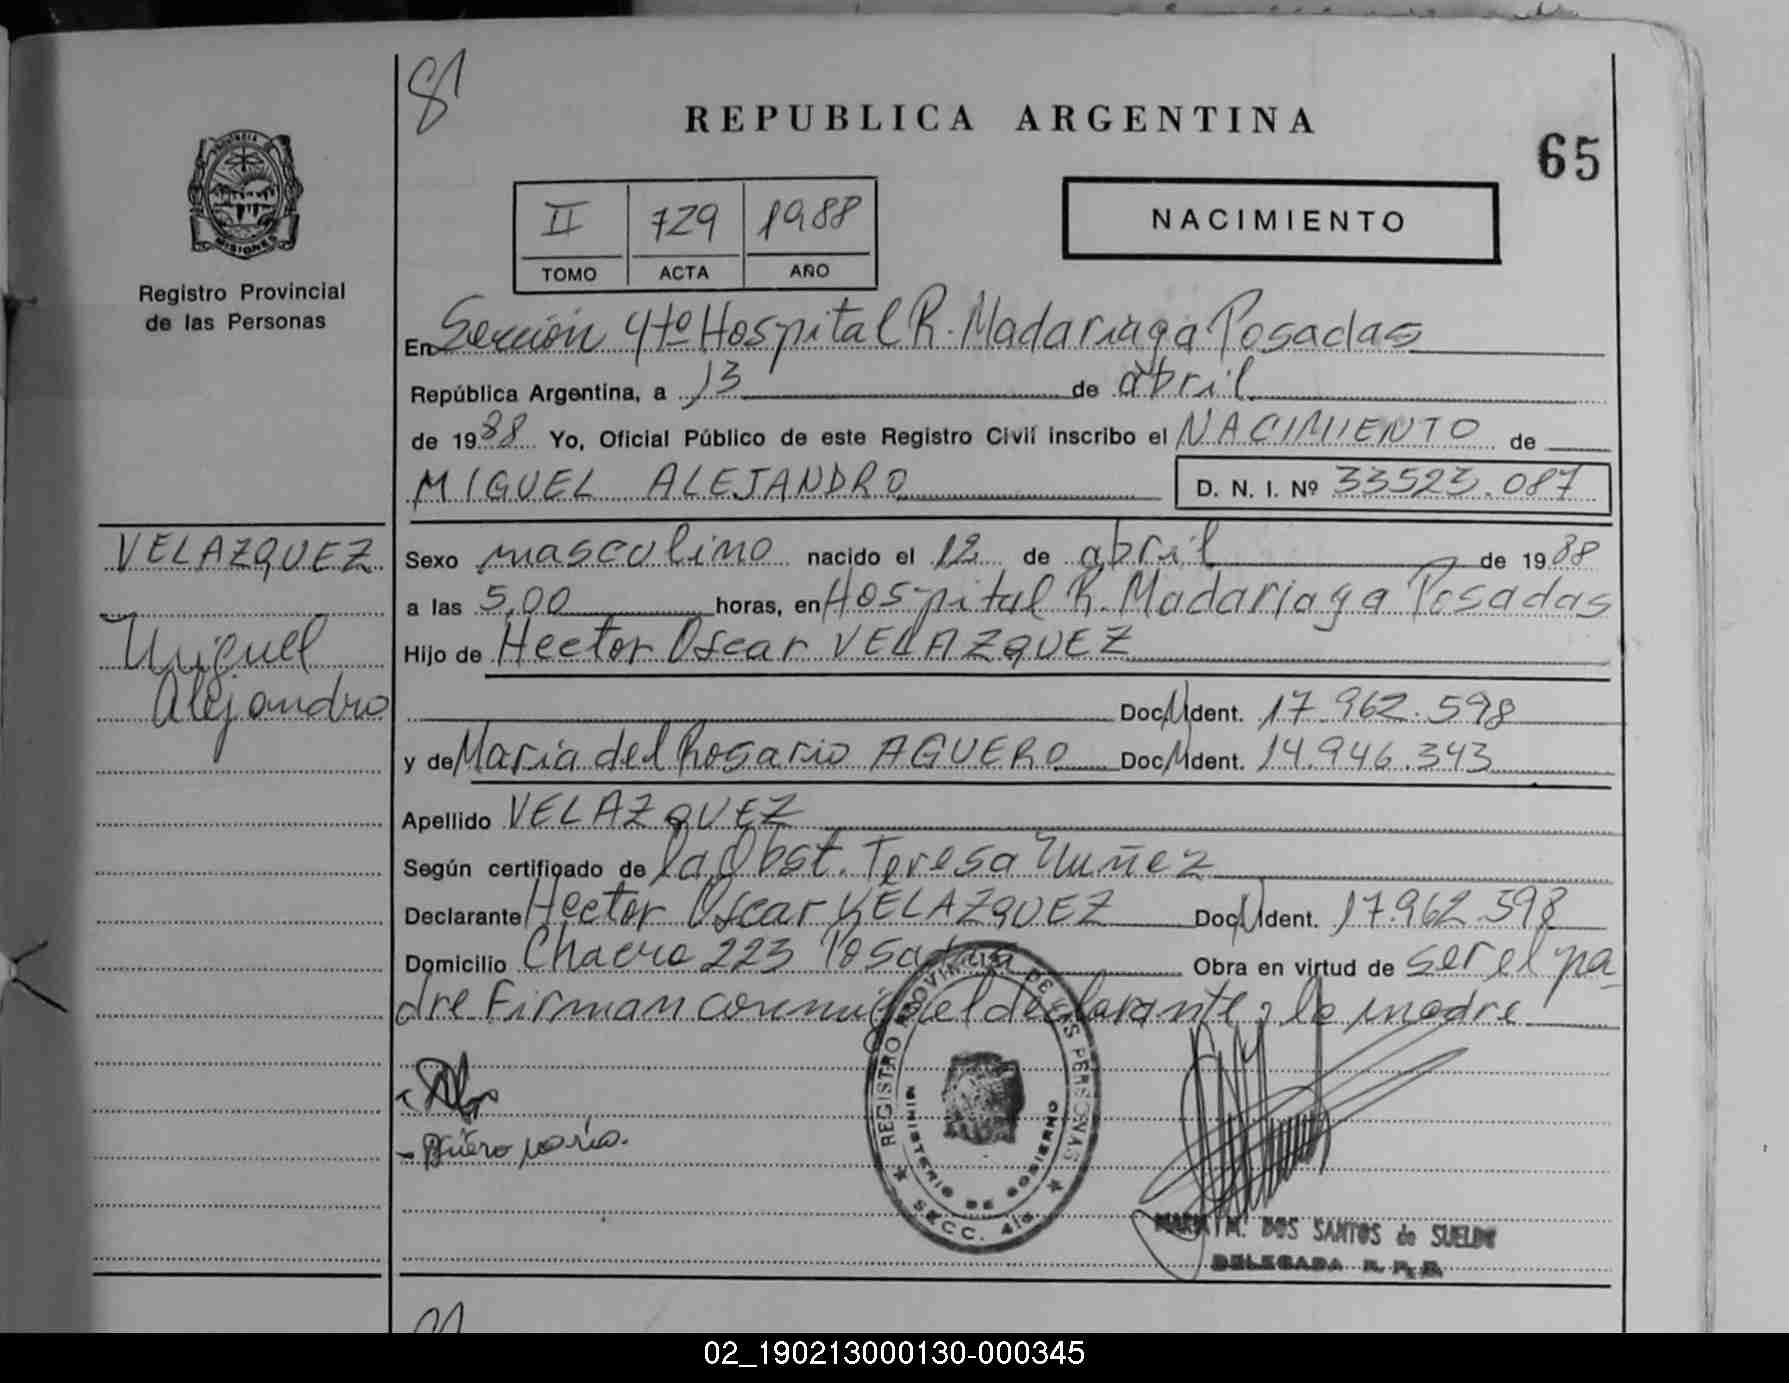 81
REPUBLICA ARGENTINA
65
PROVINCIA
MISIONES
Registro Provincial
de las Personas
II 729 1988
TOMO ACTA AÑO
NACIMIENTO
En Sección 4ta Hospital R. Madariaga Posadas
República Argentina, a 13 de abril
de 1988 Yo, Oficial Público de este Registro Civil inscribo el NACIMIENTO de
MIGUEL ALEJANDRO D. N. I. Nº 33523.087
VELAZQUEZ
Miguel
Alejandro
Sexo masculino nacido el 12 de abril de 1988
a las 5,00 horas, en Hospital R. Madariaga Posadas
Hijo de Hector Oscar VELAZQUEZ
Doc. Ident. 17.962.598
y de Maria del Rosario AGUERO Doc. Ident. 14.946.343
Apellido VELAZQUEZ
Según certificado de la Obst. Teresa Nuñez
Declarante Hector Oscar VELAZQUEZ Doc. Ident. 17.962.598
Domicilio Chacra 223 Posadas Obra en virtud de ser el pa-
dre Firman conmigo el declarante y la madre
REGISTRO PROVINCIAL DE LAS PERSONAS
MINISTERIO DE GOBIERNO
SECC. 4ta.
MARIA M. DOS SANTOS de SUELDO
DELEGADA R. P. P.
02_190213000130-000345